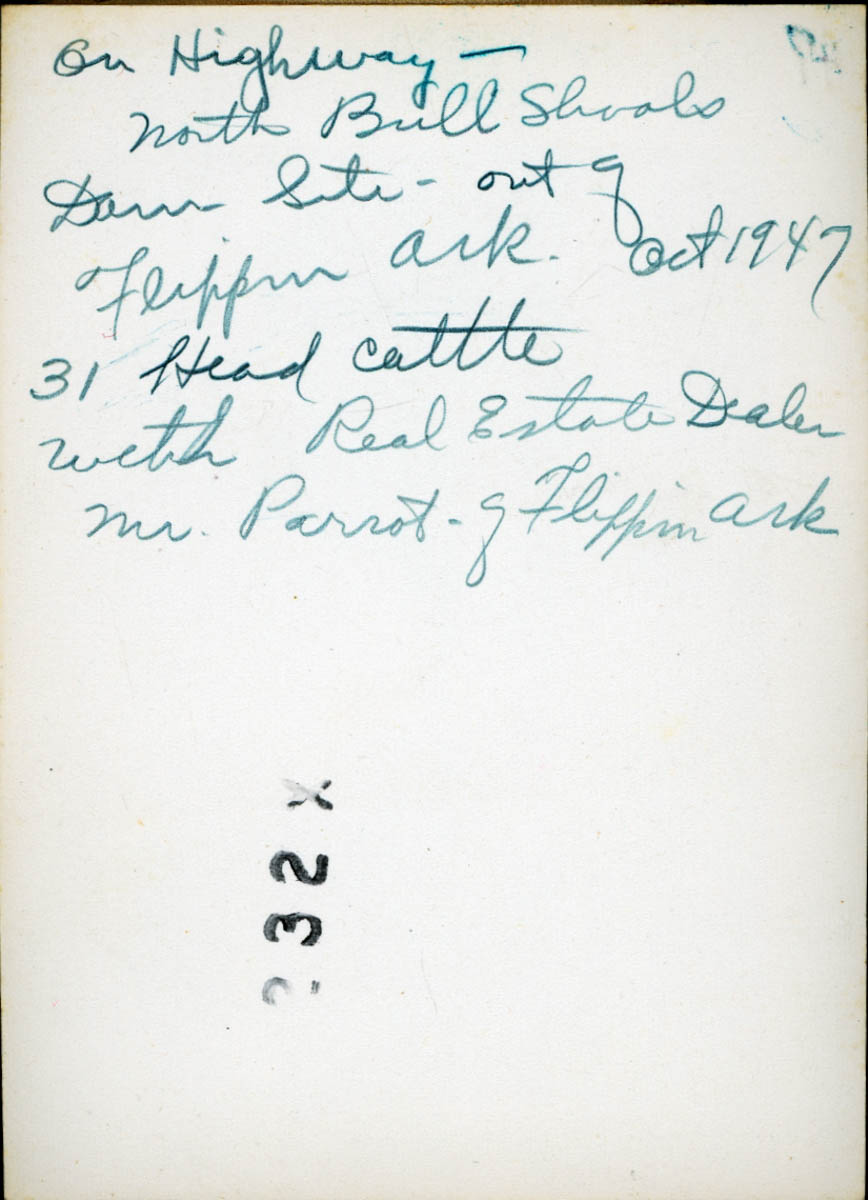 On Highway —
North Bull Shoals
Dam Site - out of
Flippin Ark. Oct 1947
31 Head cattle
with Real Estate Dealer
Mr. Parrot - of Flippin Ark
32X